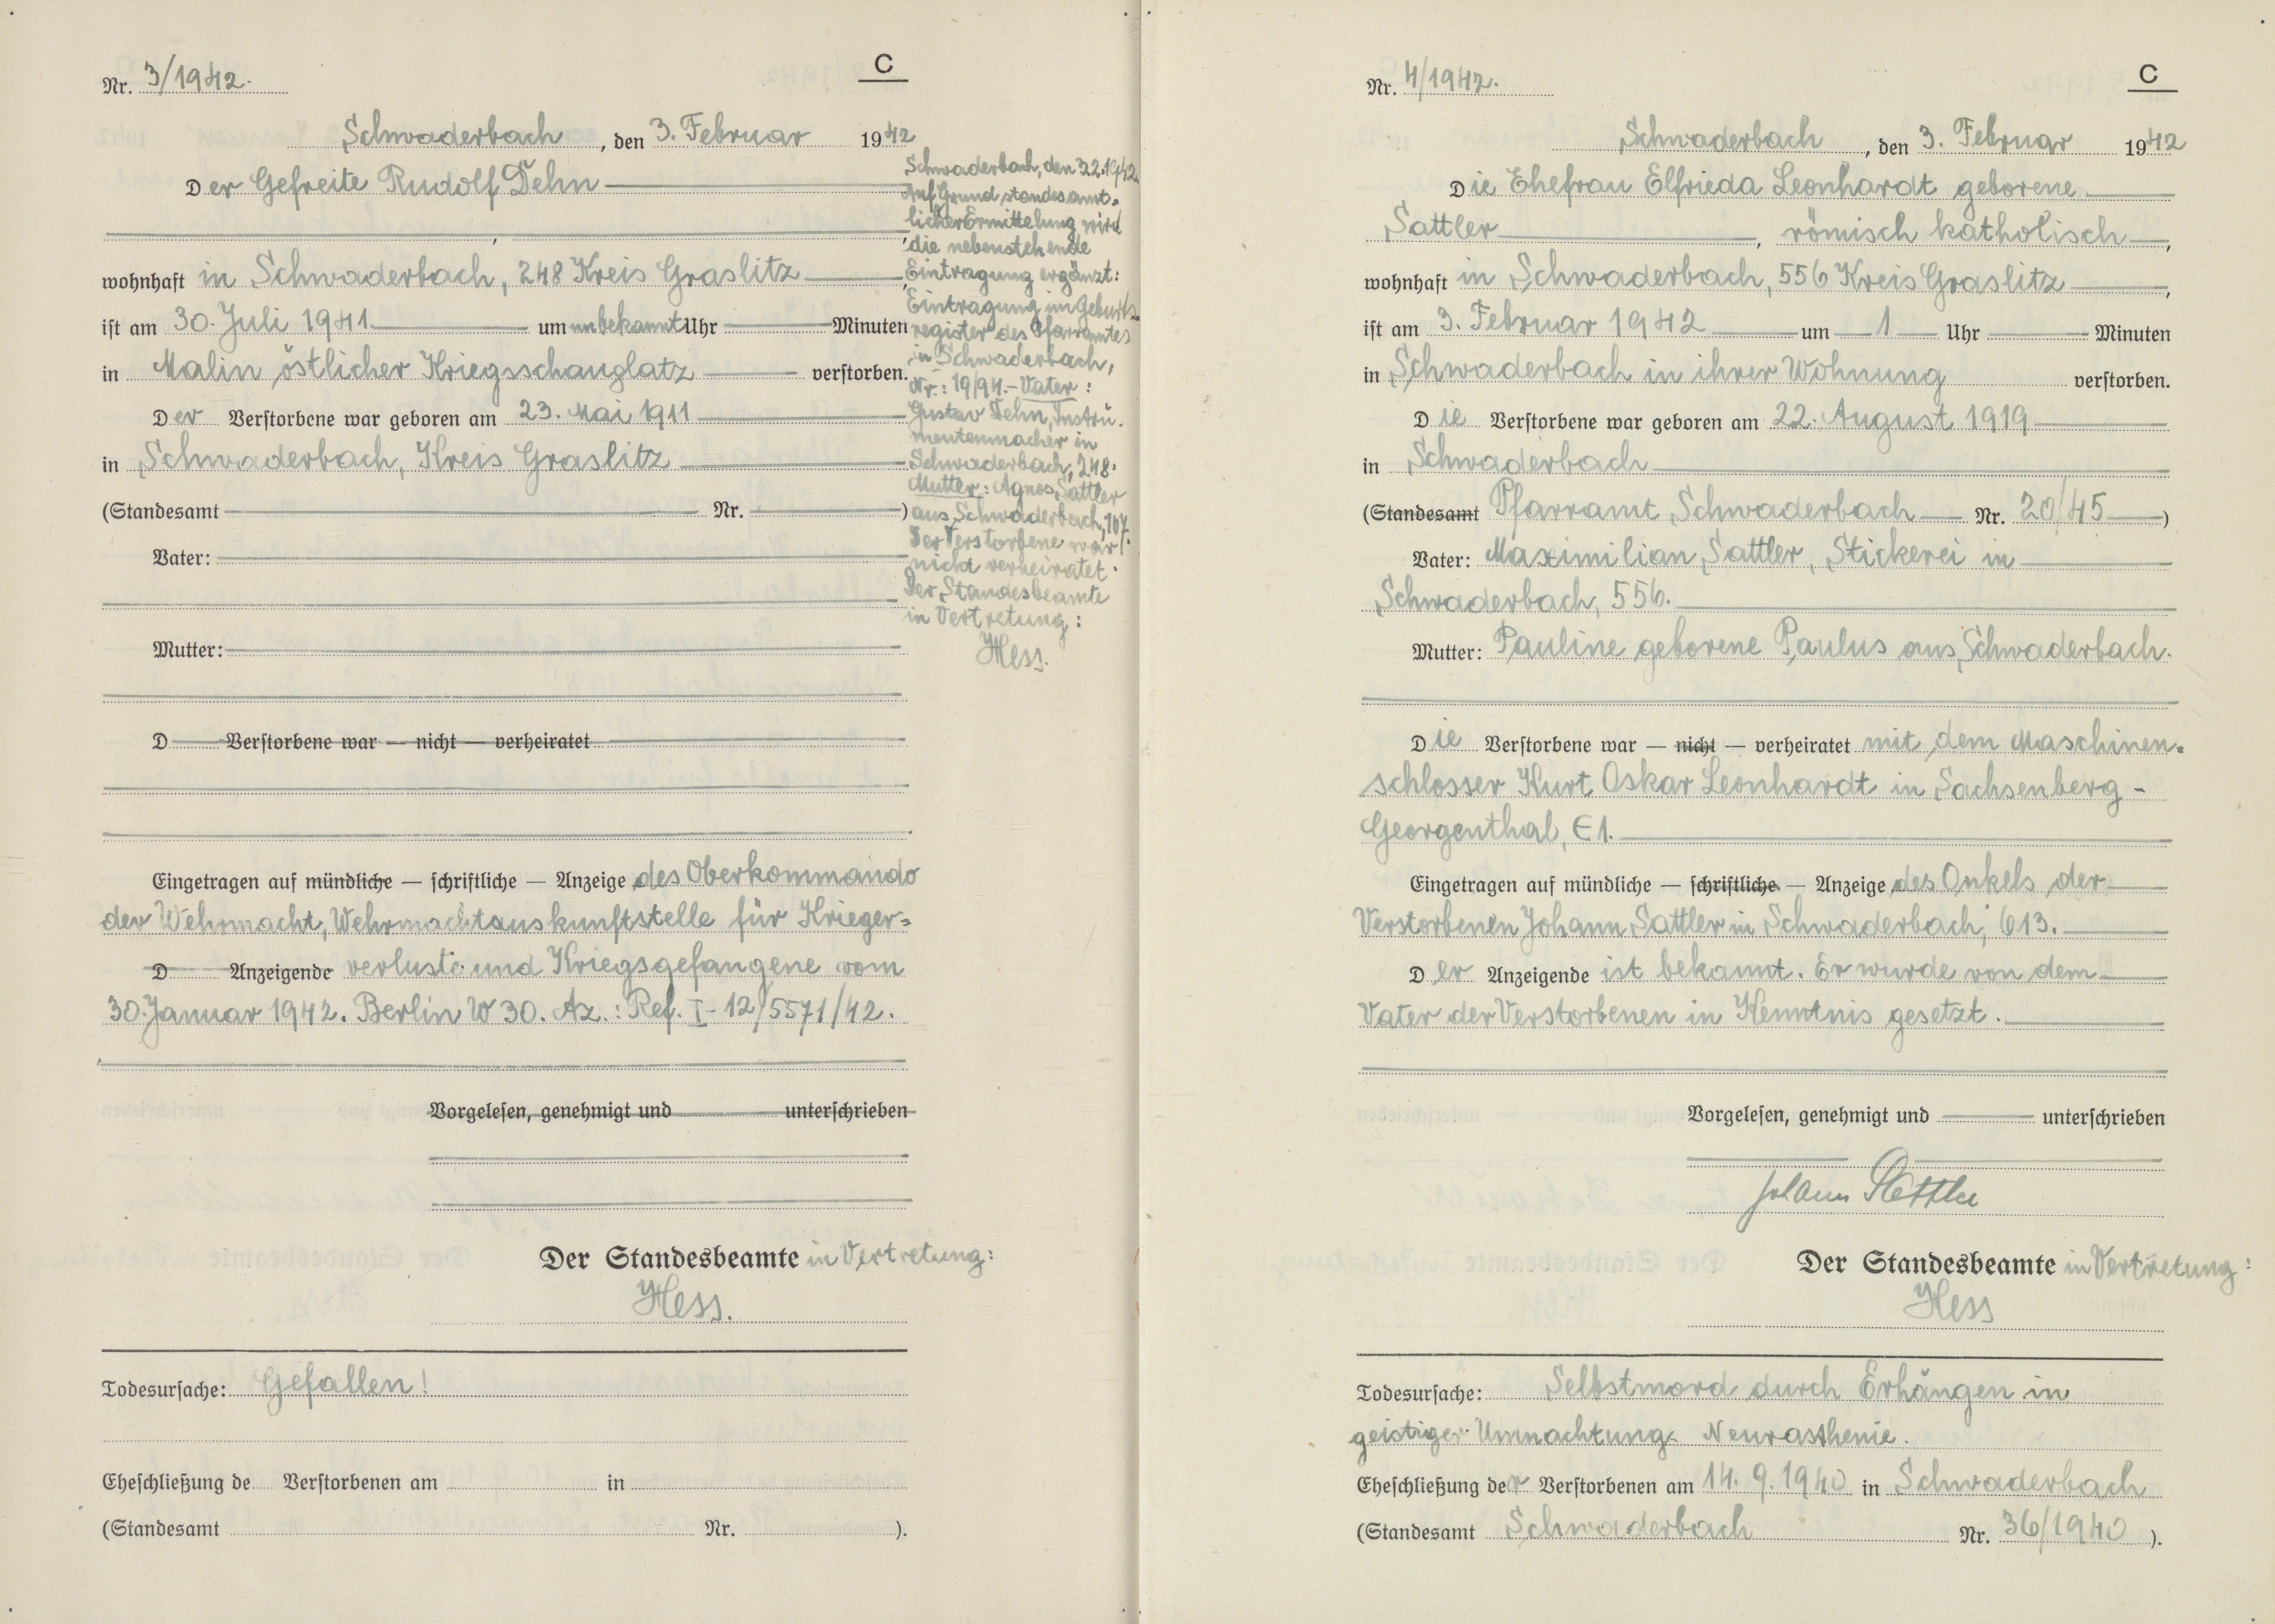 Nr. 3/1942.
C
Schwaderbach, den 3. Februar 1942
Der Gefreite Rudolf Dehn
wohnhaft in Schwaderbach, 248 Kreis Graslitz
ist am 30. Juli 1941 um unbekannt Uhr Minuten
in Malin östlicher Kriegsschauplatz verstorben.
Der Verstorbene war geboren am 23. Mai 1911
in Schwaderbach, Kreis Graslitz
(Standesamt Nr. )
Vater:
Mutter:
D Verstorbene war — nicht — verheiratet
Eingetragen auf mündliche — schriftliche — Anzeige des Oberkommando
der Wehrmacht, Wehrmachtauskunftstelle für Krieger=
D Anzeigende verluste und Kriegsgefangene vom
30. Januar 1942. Berlin W 30. Az.: Ref. I-12/5571/42.
Vorgelesen, genehmigt und unterschrieben
Der Standesbeamte in Vertretung:
Hess.
Todesursache: Gefallen!
Eheschließung de Verstorbenen am in
(Standesamt Nr. ).
Schwaderbach, den 3.2.1942.
Auf Grund standesamt=
licher Ermittelung wird
die nebenstehende
Eintragung ergänzt:
Eintragung im Geburts=
register des Pfarramtes
in Schwaderbach,
Nr.: 19/94.- Vater:
Gustav Dehn, Instru=
mentenmacher in
Schwaderbach, 248.
Mutter: Agnes Sattler
aus Schwaderbach, 107.
Der Verstorbene war
nicht verheiratet.
Der Standesbeamte
in Vertretung:
Hess.
Nr. 4/1942.
C
Schwaderbach, den 3. Februar 1942
Die Ehefrau Elfrieda Leonhardt geborene
Sattler, römisch katholisch,
wohnhaft in Schwaderbach, 556 Kreis Graslitz,
ist am 3. Februar 1942 um 1 Uhr Minuten
in Schwaderbach in ihrer Wohnung verstorben.
Die Verstorbene war geboren am 22. August 1919
in Schwaderbach
(Standesamt Pfarramt Schwaderbach Nr. 20/45)
Vater: Maximilian Sattler, Stickerei in
Schwaderbach, 556.
Mutter: Pauline geborene Paulus aus Schwaderbach.
Die Verstorbene war — nicht — verheiratet mit dem Maschinen=
schlosser Kurt Oskar Leonhardt in Sachsenberg-
Georgenthal, E 1.
Eingetragen auf mündliche — schriftliche — Anzeige des Onkels der
Verstorbenen Johann Sattler in Schwaderbach, 613.
Der Anzeigende ist bekannt. Er wurde von dem
Vater der Verstorbenen in Kenntnis gesetzt.
Vorgelesen, genehmigt und unterschrieben
Johann Sattler
Der Standesbeamte in Vertretung:
Hess
Todesursache: Selbstmord durch Erhängen in
geistiger Umnachtung. Neurasthenie.
Eheschließung der Verstorbenen am 14. 9. 1940 in Schwaderbach
(Standesamt Schwaderbach Nr. 36/1940 ).